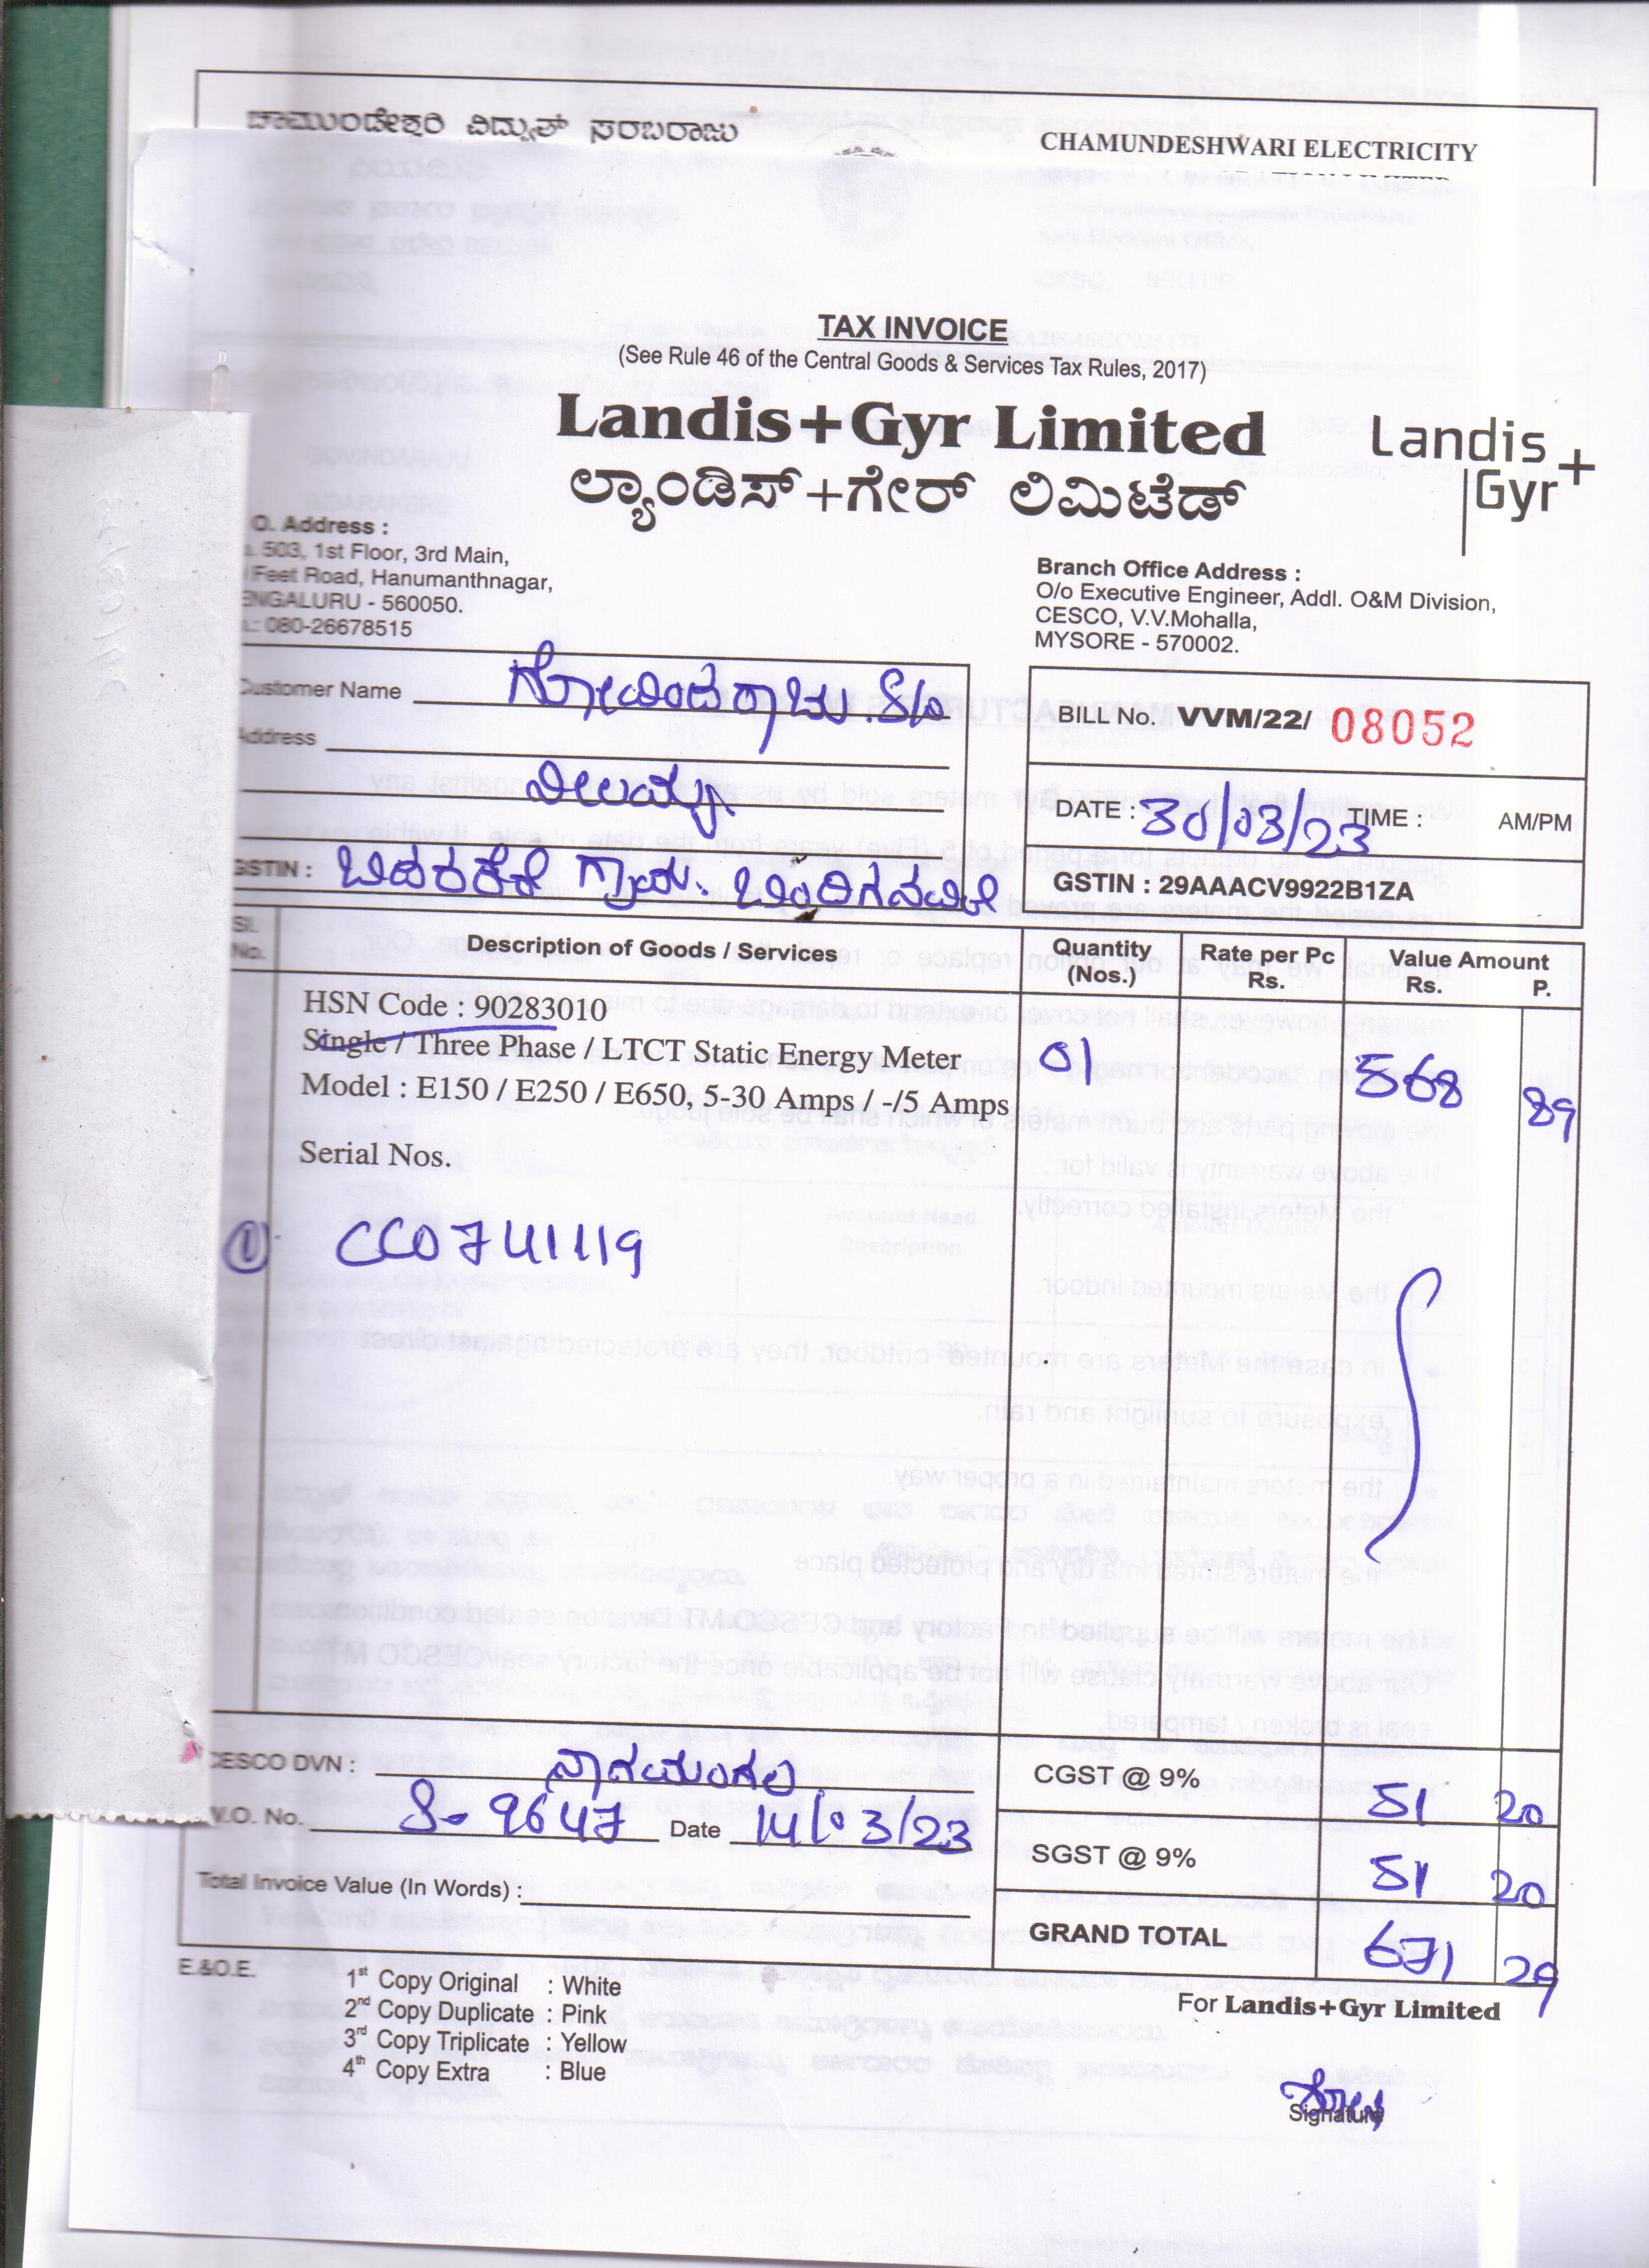 ಚಾಮುಂಡೇಶ್ವರಿ ವಿದ್ಯುತ್ ಸರಬರಾಜು
CHAMUNDESHWARI ELECTRICITY
TAX INVOICE
(See Rule 46 of the Central Goods & Services Tax Rules, 2017)
Landis+Gyr Limited
Landis
Gyr+
ಲ್ಯಾಂಡಿಸ್+ಗೇರ್ ಲಿಮಿಟೆಡ್
O. Address :
503, 1st Floor, 3rd Main,
Feet Road, Hanumanthnagar,
ENGALURU - 560050.
.: 080-26678515
Branch Office Address :
O/o Executive Engineer, Addl. O&M Division,
CESCO, V.V.Mohalla,
MYSORE - 570002.
Customer Name ಗೋವಿಂದರಾಜು S/o
Address
BILL No. VVM/22/ 08052
DATE : 30/03/23 TIME : AM/PM
GSTIN : ಬಿದರಕೆರೆ ಗ್ರಾಮ.
GSTIN : 29AAACV9922B1ZA
Sl. No. Description of Goods / Services Quantity (Nos.) Rate per Pc Rs. Value Amount Rs. P.
HSN Code : 90283010
Single / Three Phase / LTCT Static Energy Meter 01 568 89
Model : E150 / E250 / E650, 5-30 Amps / -/5 Amps
Serial Nos.
① CC0741119
CESCO DVN : ನಾಗಮಂಗಲ
CGST @ 9% 51 20
W.O. No. S-9647 Date 14/03/23
SGST @ 9% 51 20
Total Invoice Value (In Words) :
GRAND TOTAL 671 29
E.&O.E.
1st Copy Original : White
2nd Copy Duplicate : Pink
3rd Copy Triplicate : Yellow
4th Copy Extra : Blue
For Landis+Gyr Limited
Signature